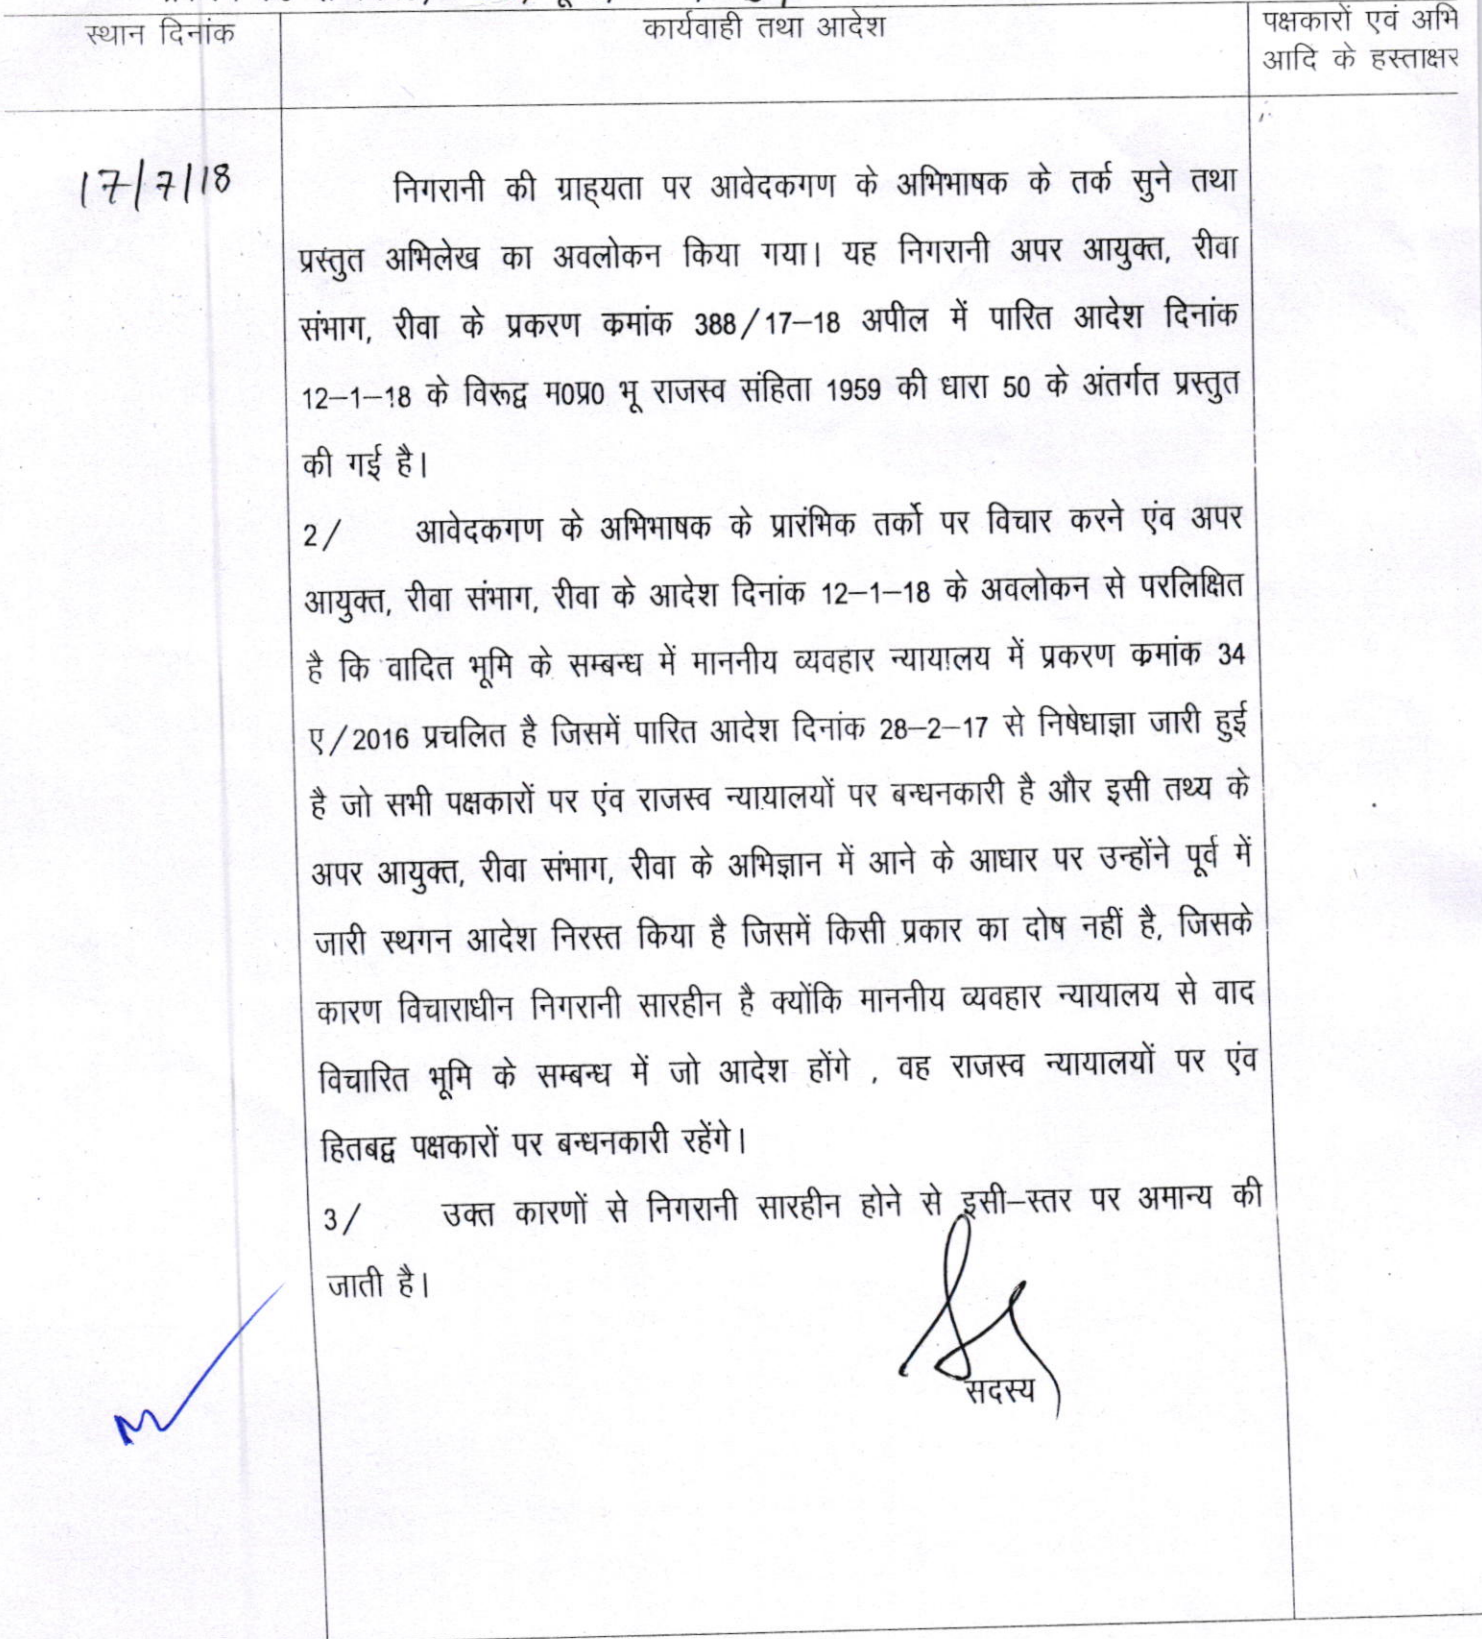 स्थान दिनांक
कार्यवाही तथा आदेश
पक्षकारों एवं अभि
आदि के हस्ताक्षर
17/7/18
निगरानी की ग्राह्यता पर आवेदकगण के अभिभाषक के तर्क सुने तथा
प्रस्तुत अभिलेख का अवलोकन किया गया। यह निगरानी अपर आयुक्त, रीवा
संभाग, रीवा के प्रकरण कमांक 388/17–18 अपील में पारित आदेश दिनांक
12–1–18 के विरूद्व म0प्र0 भू राजस्व संहिता 1959 की धारा 50 के अंतर्गत प्रस्तुत
की गई है।
2/ आवेदकगण के अभिभाषक के प्रारंभिक तर्को पर विचार करने एंव अपर
आयुक्त, रीवा संभाग, रीवा के आदेश दिनांक 12–1–18 के अवलोकन से परलिक्षित
है कि वादित भूमि के सम्बन्ध में माननीय व्यवहार न्यायालय में प्रकरण कमांक 34
ए/2016 प्रचलित है जिसमें पारित आदेश दिनांक 28–2–17 से निषेधाज्ञा जारी हुई
है जो सभी पक्षकारों पर एंव राजस्व न्यायालयों पर बन्धनकारी है और इसी तथ्य के
अपर आयुक्त, रीवा संभाग, रीवा के अभिज्ञान में आने के आधार पर उन्होंने पूर्व में
जारी स्थगन आदेश निरस्त किया है जिसमें किसी प्रकार का दोष नहीं है, जिसके
कारण विचाराधीन निगरानी सारहीन है क्योंकि माननीय व्यवहार न्यायालय से वाद
विचारित भूमि के सम्बन्ध में जो आदेश होंगे , वह राजस्व न्यायालयों पर एंव
हितबद्व पक्षकारों पर बन्धनकारी रहेंगे।
3/ उक्त कारणों से निगरानी सारहीन होने से इसी–स्तर पर अमान्य की
जाती है।
सदस्य